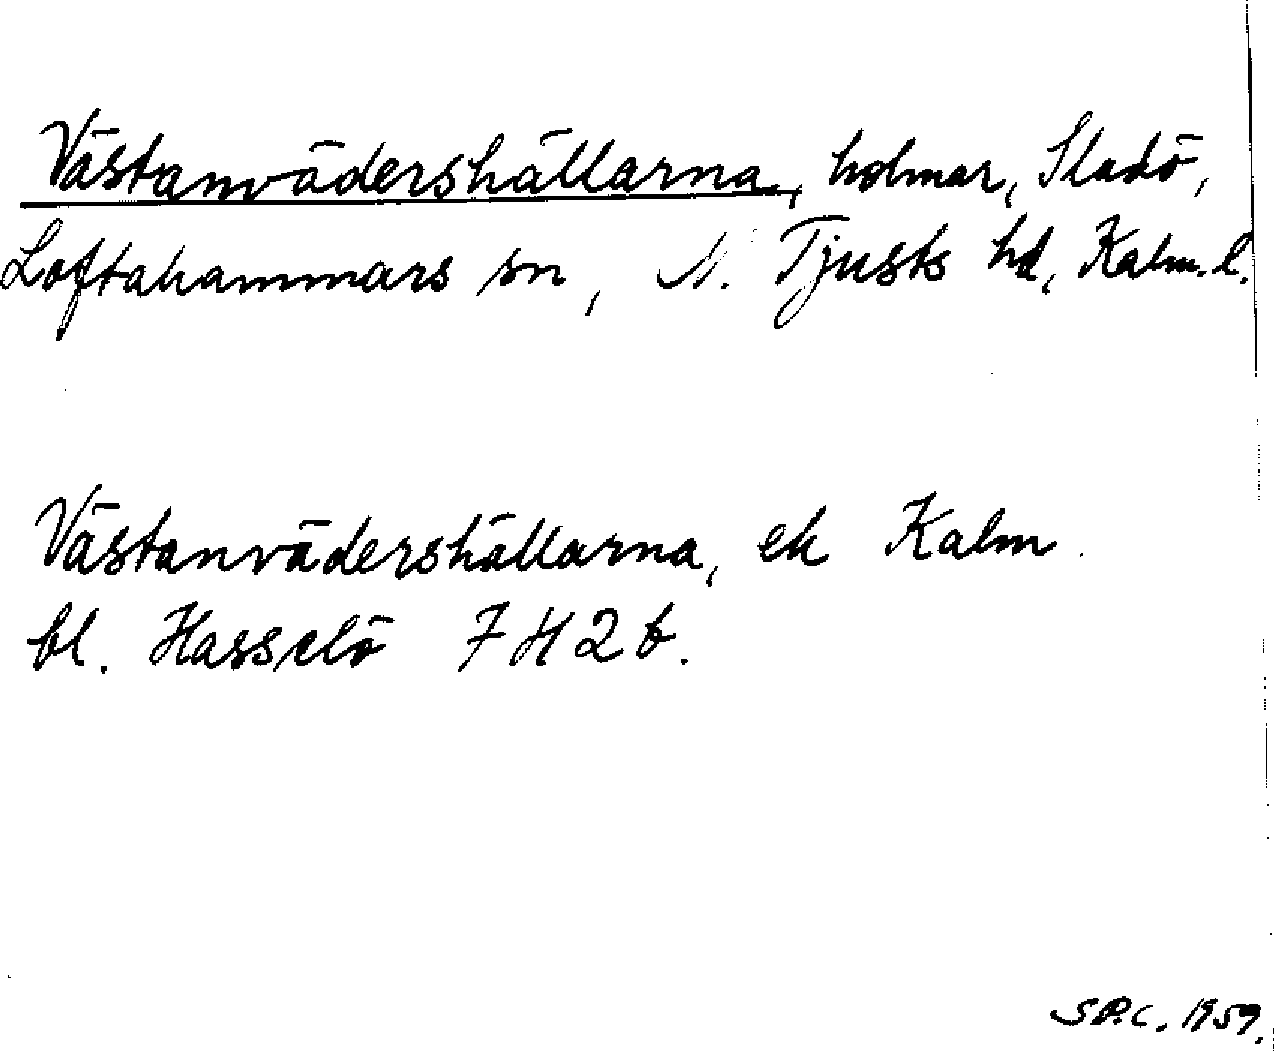 Västanvädershällarna, holmar, Sladö,
Loftahammars sn, N. Tjusts hd, Kalm. l.
Västanvädershällarna, ek Kalm.
bl. Hasselö 7H2b.
SP.C. 1959.